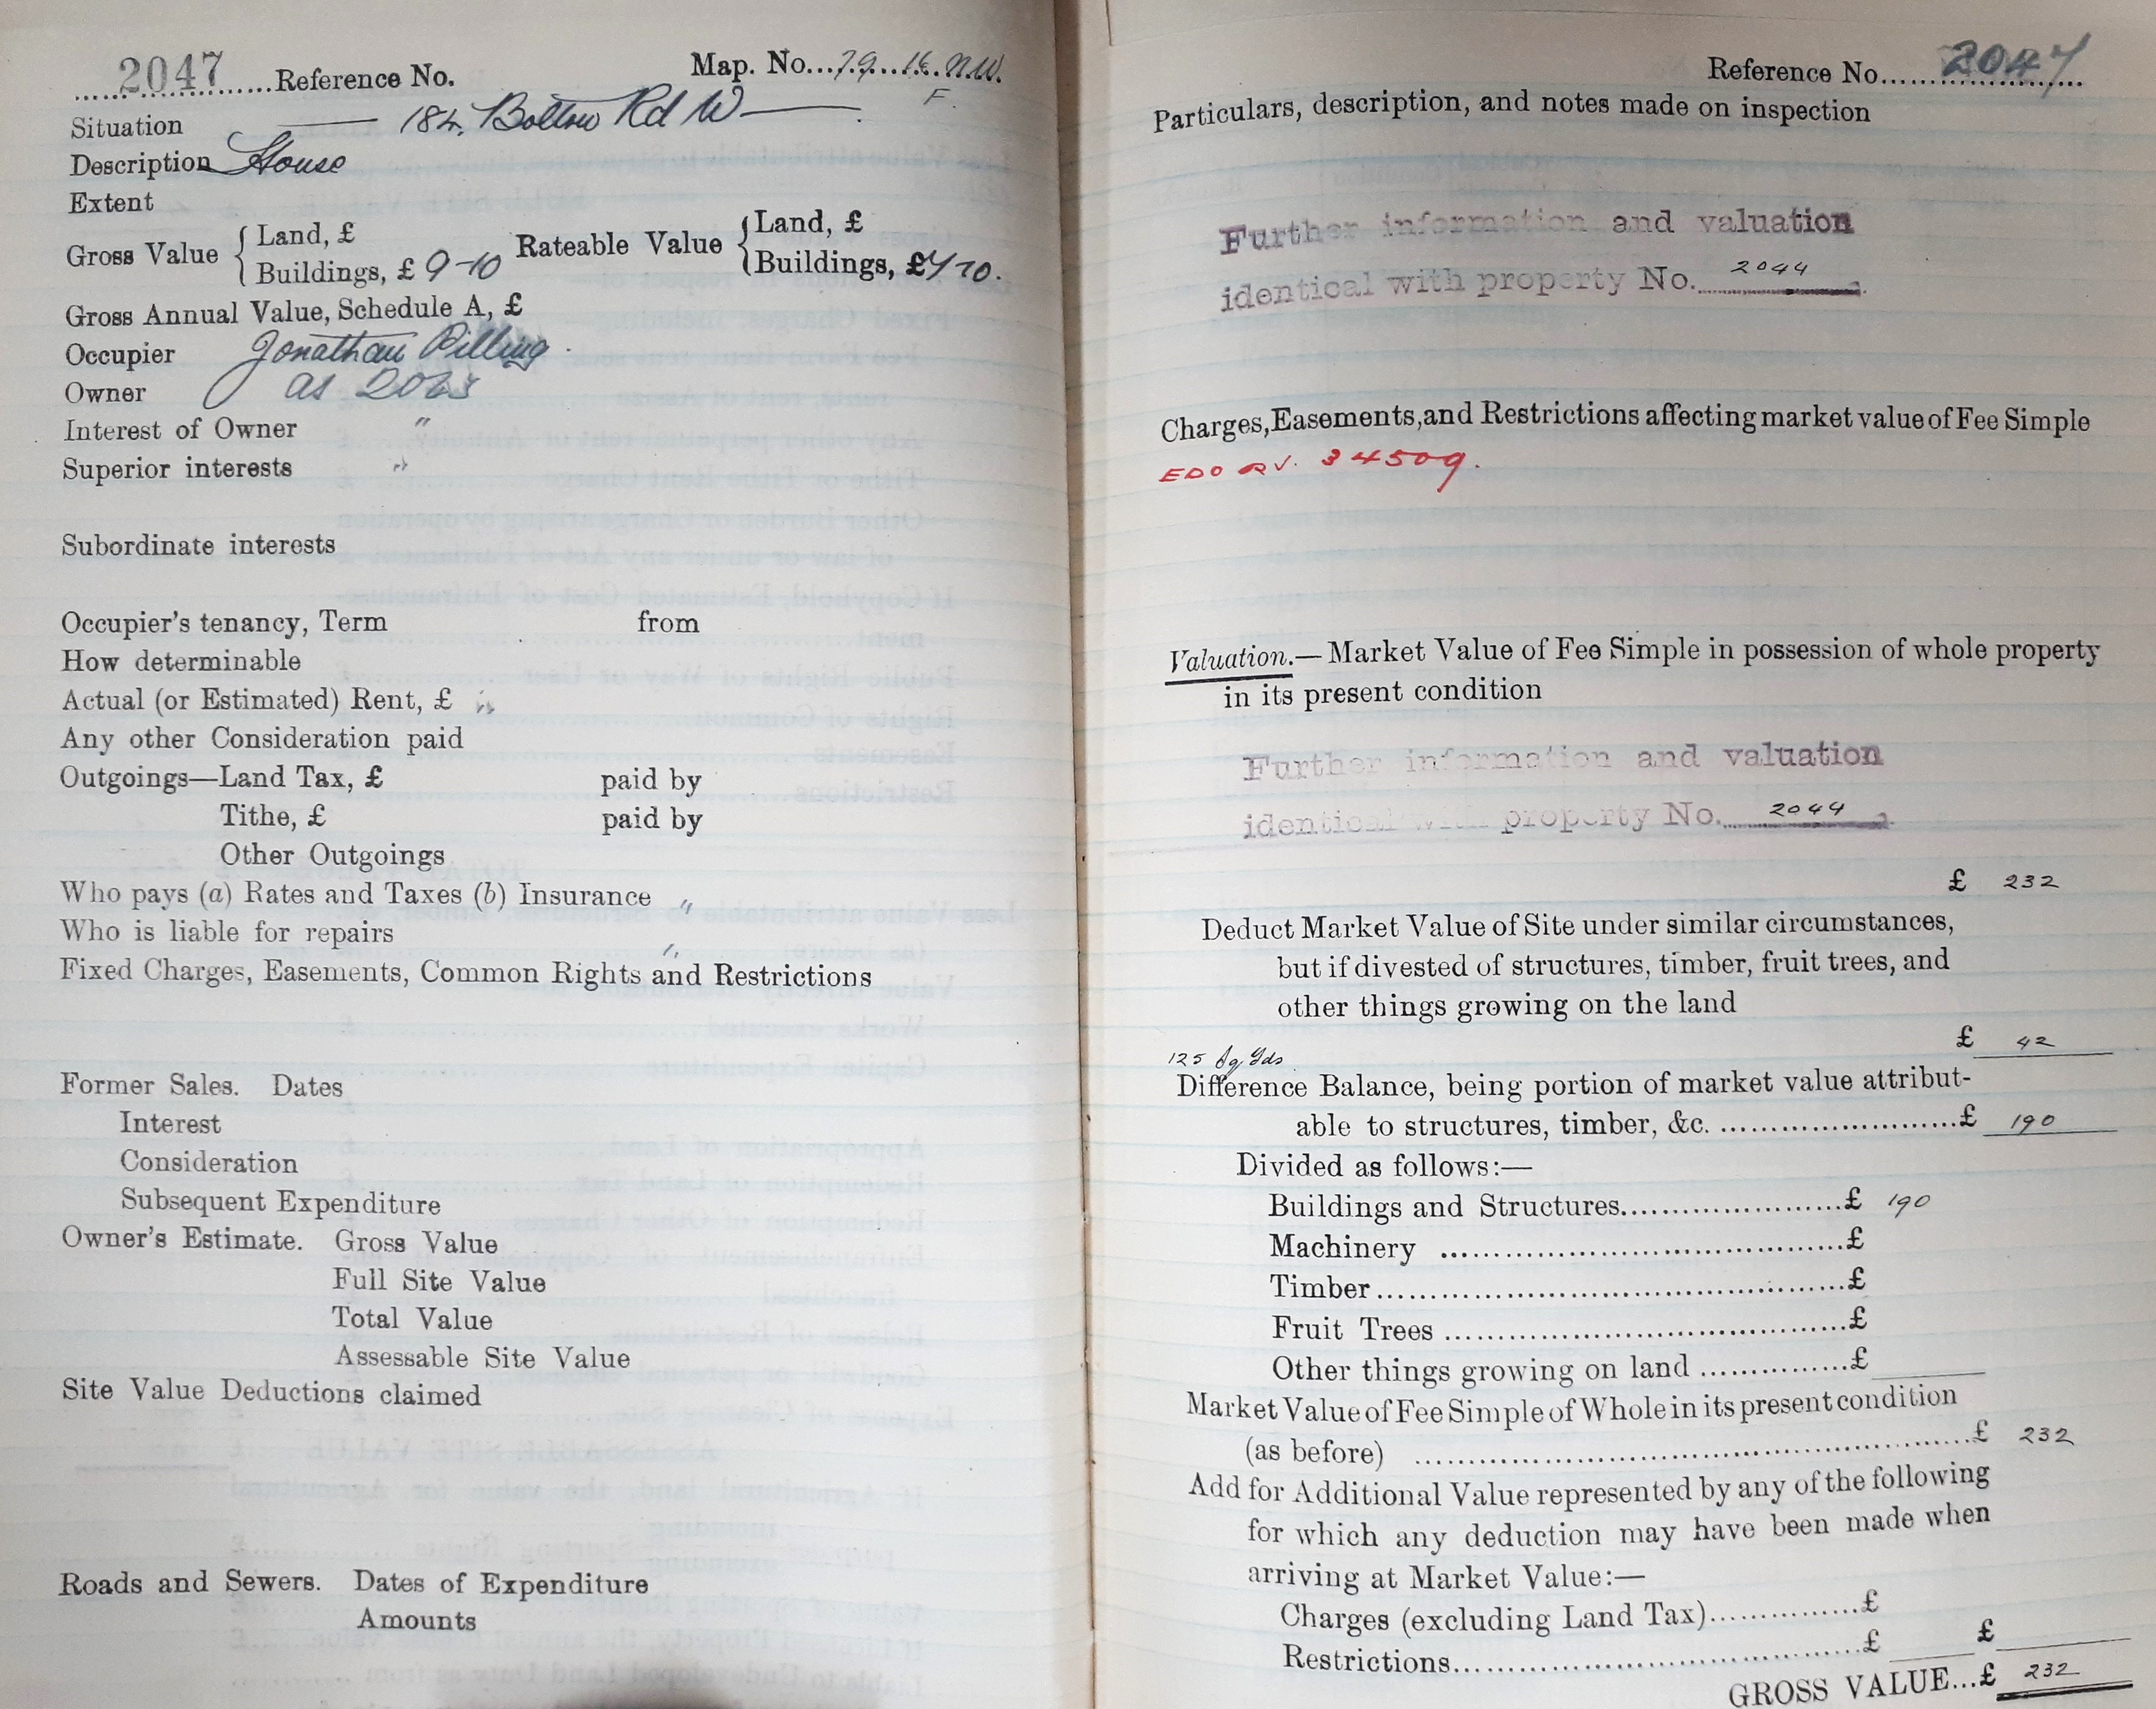 2047 Reference No.
Map. No. 79.16.N.W.
F.
Situation 184, Bolton Rd W
Description House
Extent
Gross Value { Land, £
Buildings, £ 9-10
Rateable Value { Land, £
Buildings, £ 7 10.
Gross Annual Value, Schedule A, £
Occupier Jonathan Pilling
Owner as
Interest of Owner "
Superior interests "
Subordinate interests
Occupier's tenancy, Term from
How determinable
Actual (or Estimated) Rent, £ "
Any other Consideration paid
Outgoings—Land Tax, £ paid by
Tithe, £ paid by
Other Outgoings
Who pays (a) Rates and Taxes (b) Insurance "
Who is liable for repairs "
Fixed Charges, Easements, Common Rights and Restrictions
Former Sales. Dates
Interest
Consideration
Subsequent Expenditure
Owner's Estimate. Gross Value
Full Site Value
Total Value
Assessable Site Value
Site Value Deductions claimed
Roads and Sewers. Dates of Expenditure
Amounts
Reference No. 2047
Particulars, description, and notes made on inspection
Further information and valuation
identical with property No. 2044
Charges, Easements, and Restrictions affecting market value of Fee Simple
EDO RV. 34509.
Valuation.—Market Value of Fee Simple in possession of whole property
in its present condition
Further information and valuation
identical with property No. 2044
£ 232
Deduct Market Value of Site under similar circumstances,
but if divested of structures, timber, fruit trees, and
other things growing on the land
£ 42
125 Sq Yds
Difference Balance, being portion of market value attribut-
able to structures, timber, &c. £ 190
Divided as follows:—
Buildings and Structures £ 190
Machinery £
Timber £
Fruit Trees £
Other things growing on land £
Market Value of Fee Simple of Whole in its present condition
(as before) £ 232
Add for Additional Value represented by any of the following
for which any deduction may have been made when
arriving at Market Value:—
Charges (excluding Land Tax) £
Restrictions £ £
GROSS VALUE...£ 232